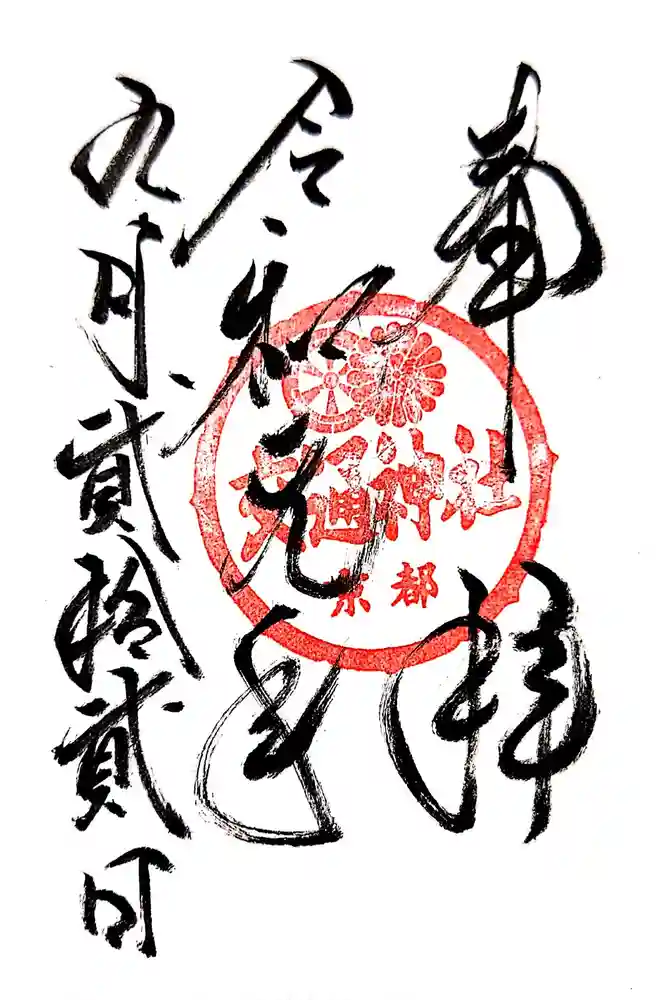 奉拝
交通神社
京都
令和元年
九月貳拾貳日